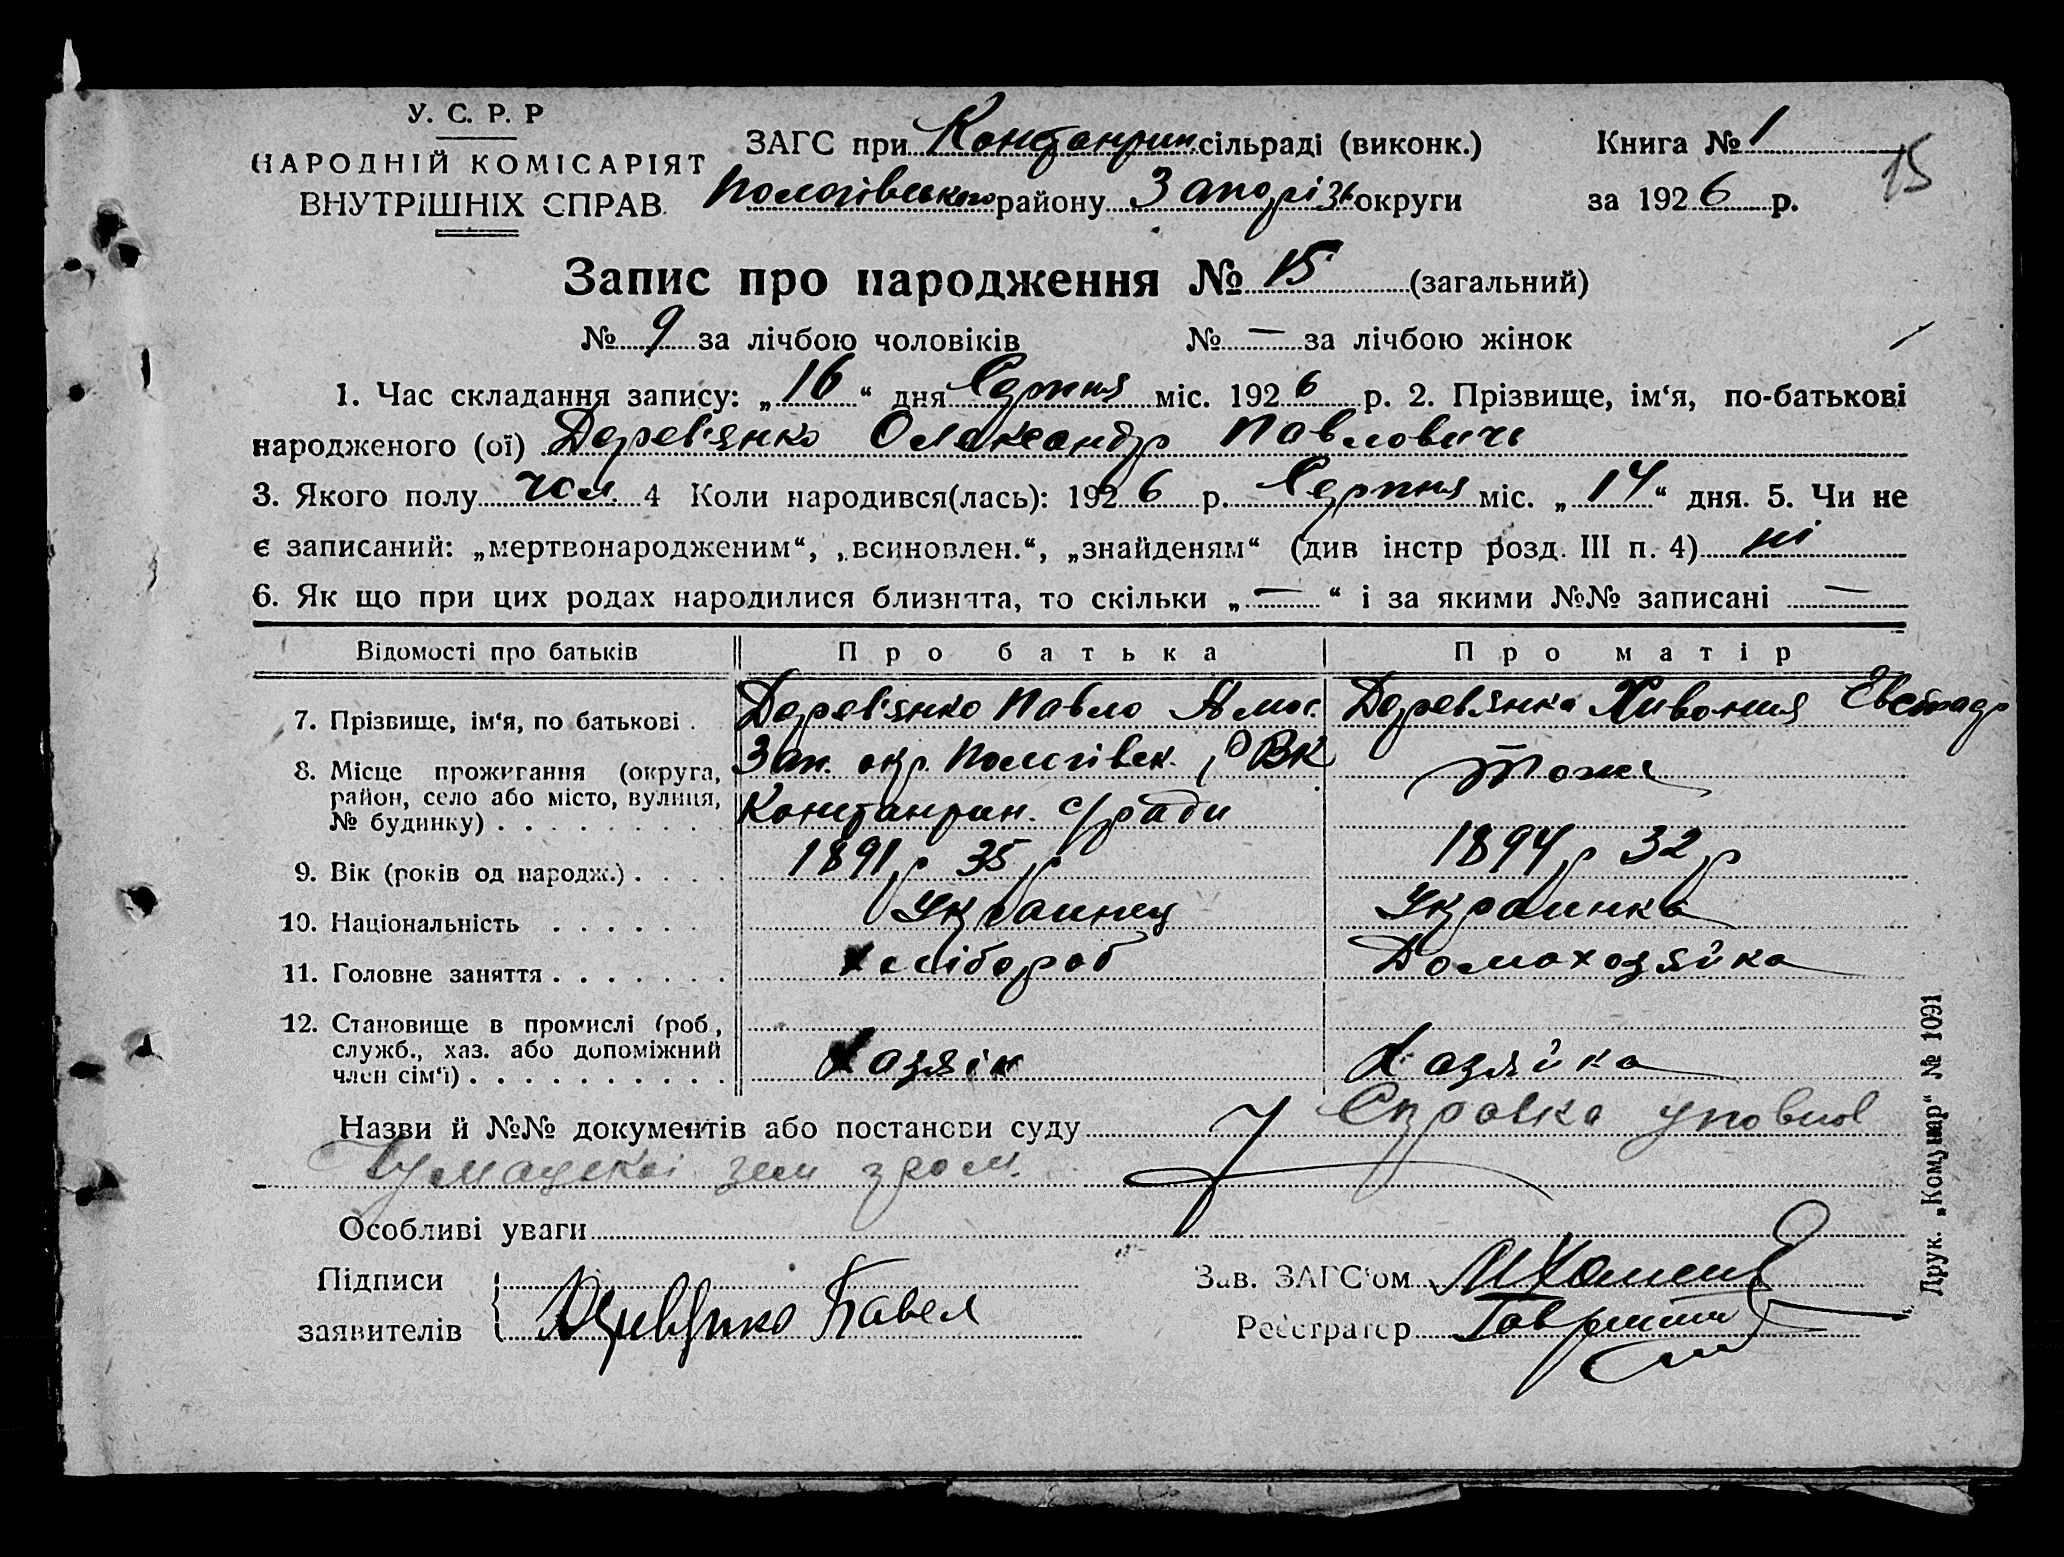 У. С. Р. Р
НАРОДНІЙ КОМІСАРІЯТ
ВНУТРІШНІХ СПРАВ.
ЗАГС при Констанрин. сільраді (виконк.)
Пологівського району Запоріз. округи
Книга № 1
за 1926 р.
15
Запис про народження № 15 (загальний)
№ 9 за лічбою чоловіків № — за лічбою жінок
1. Час складання запису: „16“ дня Серпня міс. 1926 р. 2. Прізвище, ім‘я, по-батькові
народженого (ої) Дерев'янко Олександр Павлович
3. Якого полу чол. 4 Коли народився(лась): 1926 р. Серпня міс. „14“ дня. 5. Чи не
є записаний: „мертвонародженим“, „всиновлен.“, „знайденям“ (див інстр розд. III п. 4) ні
6. Як що при цих родах народилися близнята, то скільки „—“ і за якими №№ записані —
Відомості про батьків Про батька Про матір
7. Прізвище, ім‘я, по батькові . Дерев'янко Павло Амос. Дерев'янка Хивония Евстафр
8. Місце проживання (округа, район, село або місто, вулиця, № будинку) . . . . . . . . .
Зап. окр. Пологівск. РВК Тоже
с/ради
9. Вік (років од народж.) . . . . 1891 р 35 р 1894 р 32 р
10. Національність . . . . . . Украинец Украинка
11. Головне заняття . . . . . . . Хлібороб Домохозяйка
12. Становище в промислі (роб., служб., хаз. або допоміжний член сім‘ї) . . . . . . . . . . Хазяін Хазяйка
Назви й №№ документів або постанови суду Справка уповнов
зем
Особливі уваги
Підписи
заявителів
Деревянко Павел
Зав. ЗАГС‘ом
Реєстратор
Друк. „Комунар“ № 1091